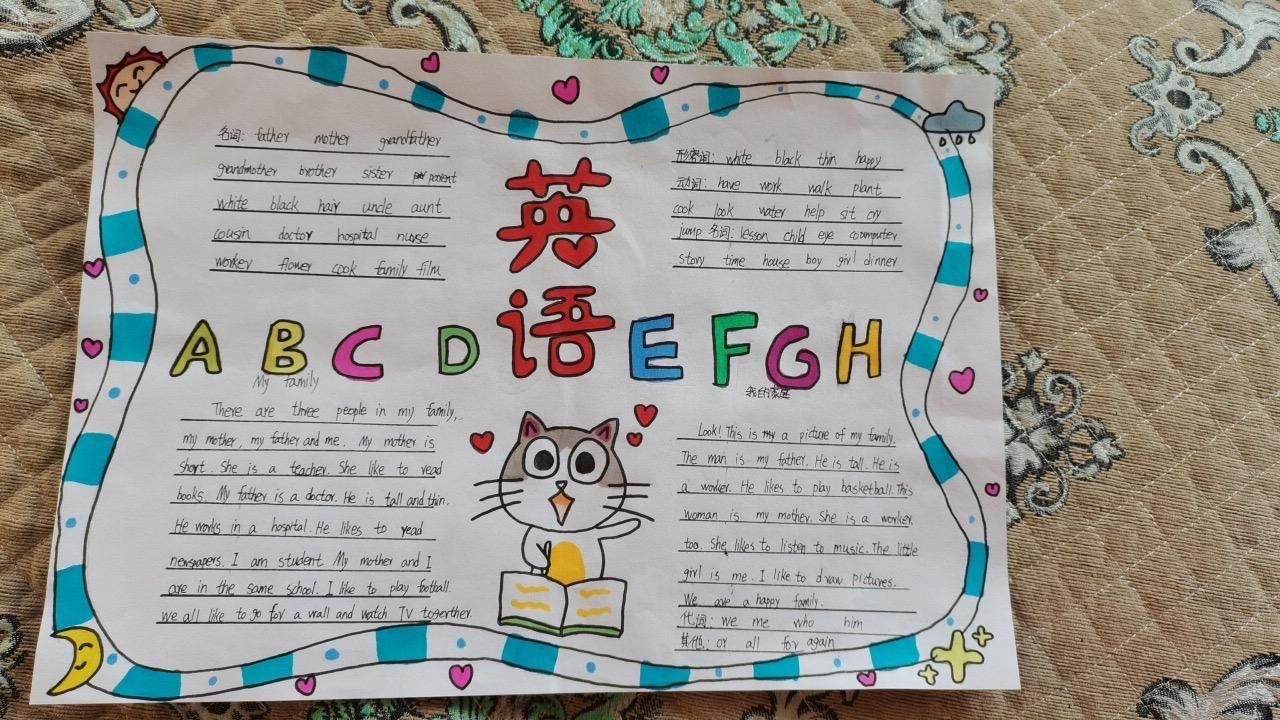 名词: father mother grandfather
grandmother brother sister parent
white black hair uncle aunt
cousin doctor hospital nurse
worker flower cook family film
英
语
形容词: white black thin happy
动词: have work walk plant
cook look water help sit cry
jump 名词: lesson child eye coumputer
story time house boy girl dinner
A B C D E F G H
My family
There are three people in my family,
my mother, my father and me. My mother is
short. She is a teacher. She like to read
books. My father is a doctor. He is tall and thin.
He works in a hospital. He likes to read
newspapers. I am student My mother and I
are in the same school. I like to play fotball.
we all like to go for a wall and watch TV togerther.
我的家庭
Look! This is my a picture of my family.
The man is my father. He is tall. He is
a worker. He likes to play basketball. This
woman is my mother. She is a worker.
too. She likes to listen to music. The little
girl is me. I like to draw pictures.
We are a happy family.
代词: we me who him
其他: or all for again